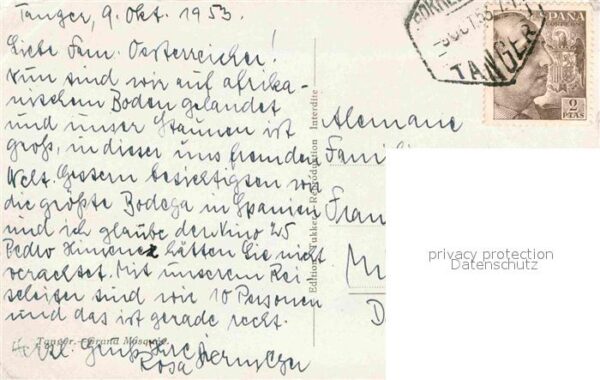 Tanger, 9. Okt. 1953.
Liebe Fam. Oesterreicher!
Nun sind wir auf afrika-
nischem Boden gelandet
und unser Staunen ist
groß, in dieser uns fremden
Welt. Gestern besichtigten wir
die größte Bodega in Spanien
und ich glaube den Vino 25
Pedro Ximenez hätten Sie nicht
verachtet. Mit unserem Rei-
seleiter sind wir 10 Personen
und das ist gerade recht.
Tanger. - Grand Mosquée.
Herzl. Gruß Ihre
Rosa
Edition Tukker - Reproduction Interdite
TANGER
ESPAÑA
CORREOS
2
PTAS
Alemane
Famili
Fran
M
D
privacy protection
Datenschutz